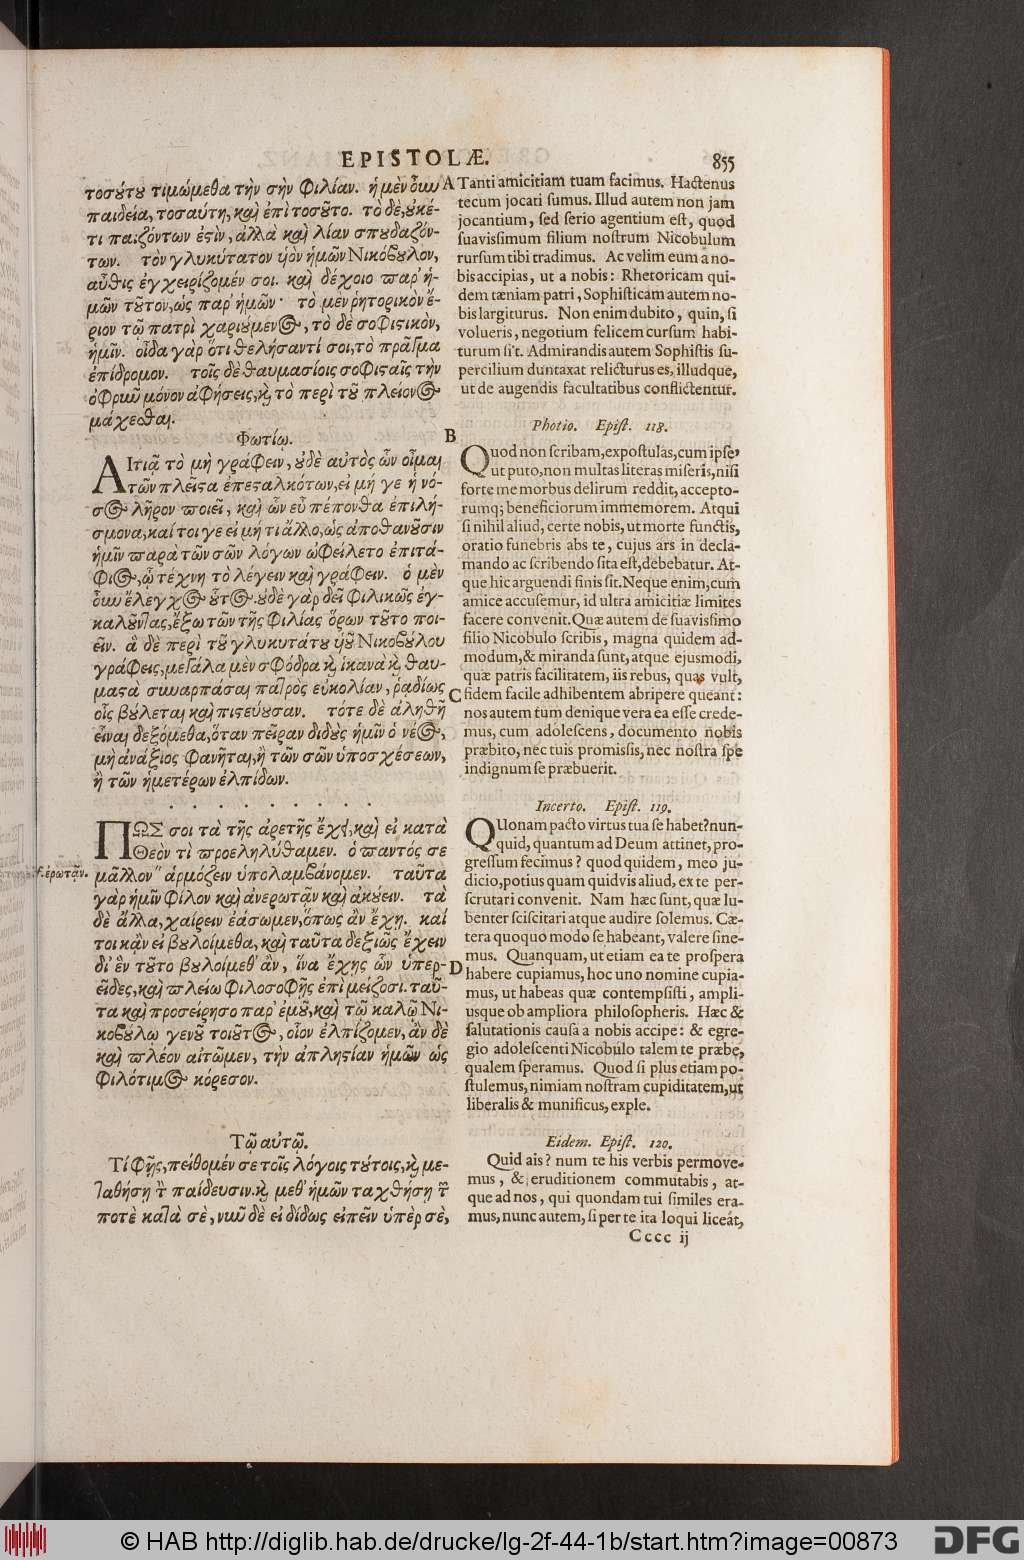 EPISTOLÆ.
855
τοσούτου τιμώμεθα τὴν σὴν φιλίαν. ἡ μὲν οὖν
παιδεία, τοσαύτη, καὶ ἐπὶ τοσοῦτο. τὸ δὲ, οὐκέ-
τι παιζόντων ἐστὶν, ἀλλὰ καὶ λίαν σπουδαζόν-
των. τὸν γλυκύτατον υἱὸν ἡμῶν Νικόβουλον,
αὖθις ἐγχειρίζομέν σοι. καὶ δέχοιο παρ' ἡ-
μῶν τοῦτον, ὡς παρ' ἡμῶν· τὸ μὲν ῥητορικὸν ἔ-
ριον τῷ πατρὶ χαριούμενος, τὸ δὲ σοφιστικὸν,
ἡμῖν. οἶδα γὰρ ὅτι θελήσαντί σοι, τὸ πρᾶγμα
ἐπίδρομον. τοῖς δὲ θαυμασίοις σοφισταῖς τὴν
ὀφρὺν μόνον ἀφήσεις, καὶ τὸ περὶ τοῦ πλείονος
μάχεσθαι.
Φωτίῳ.
ΑΙτιᾷ τὸ μὴ γράφειν, οὐδὲ αὐτὸς ὢν οἶμαι
τῶν πλεῖστα ἐπεσταλκότων, εἰ μή γε ἡ νό-
σος λῆρον ποιεῖ, καὶ ὧν εὖ πέπονθα ἐπιλή-
σμονα, καί τοι γε εἰ μή τι ἄλλο, ὡς ἀποθανοῦσιν
ἡμῖν παρὰ τῶν σῶν λόγων ὠφείλετο ἐπιτά-
φιος, ᾧ τέχνη τὸ λέγειν καὶ γράφειν. ὁ μὲν
οὖν ἔλεγχος οὗτος. οὐδὲ γὰρ δεῖ φιλικῶς ἐγ-
καλοῦντας, ἔξω τῶν τῆς φιλίας ὅρων τοῦτο ποι-
εῖν. ἃ δὲ περὶ τοῦ γλυκυτάτου υἱοῦ Νικοβούλου
γράφεις, μεγάλα μὲν σφόδρα καὶ ἱκανὰ καὶ θαυ-
μαστὰ συναρπάσαι πατρὸς εὐκολίαν, ῥαδίως
οἷς βούλεται καὶ πιστεύουσαν. τότε δὲ ἀληθῆ
εἶναι δεξόμεθα, ὅταν πεῖραν διδοὺς ἡμῖν ὁ νέος,
μὴ ἀνάξιος φανῆται, ἢ τῶν σῶν ὑποσχέσεων,
ἢ τῶν ἡμετέρων ἐλπίδων.
. . . . . . . .
ΠΩΣ σοι τὰ τῆς ἀρετῆς ἔχει, καὶ εἰ κατὰ
Θεὸν τὶ προεληλύθαμεν. ὁ παντός σε
f. ἐρωτᾷν.
μᾶλλον " ἁρμόζειν ὑπολαμβάνομεν. ταῦτα
γὰρ ἡμῖν φίλον καὶ ἀνερωτᾷν καὶ ἀκούειν. τὰ
δὲ ἄλλα, χαίρειν ἐάσωμεν, ὅπως ἂν ἔχῃ. καί
τοι κἂν εἰ βουλοίμεθα, καὶ ταῦτα δεξιῶς ἔχειν
δι' ἓν τοῦτο βουλοίμεθ' ἂν, ἵνα ἔχῃς ὧν ὑπερ-
εῖδες, καὶ πλείω φιλοσοφῇς ἐπὶ μείζοσι. ταῦ-
τα καὶ προσείρησο παρ' ἐμοῦ, καὶ τῷ καλῷ Νι-
κοβούλῳ γενοῦ τοιοῦτος, οἷον ἐλπίζομεν, ἂν δὲ
καὶ πλέον αἰτῶμεν, τὴν ἀπληστίαν ἡμῶν ὡς
φιλότιμος κόρεσον.
Τῷ αὐτῷ.
Τί φῄς, πείθομέν σε τοῖς λόγοις τούτοις, καὶ με-
ταθήσῃ τὴν παίδευσιν. καὶ μεθ' ἡμῶν ταχθήσῃ τῶν
ποτὲ κατὰ σὲ, νυνῦ δὲ εἰ δίδως εἰπεῖν ὑπὲρ σὲ,
A Tanti amicitiam tuam facimus. Hactenus
tecum jocati sumus. Illud autem non jam
jocantium, sed serio agentium est, quod
suavissimum filium nostrum Nicobulum
rursum tibi tradimus. Ac velim eum a no-
bis accipias, ut a nobis: Rhetoricam qui-
dem tæniam patri, Sophisticam autem no-
bis largiturus. Non enim dubito, quin, si
volueris, negotium felicem cursum habi-
turum sit. Admirandis autem Sophistis su-
percilium duntaxat relicturus es, illudque,
ut de augendis facultatibus conflictentur.
Photio. Epist. 118.
B
Quod non scribam, expostulas, cum ipse,
ut puto, non multas literas miseris, nisi
forte me morbus delirum reddit, accepto-
rumq; beneficiorum immemorem. Atqui
si nihil aliud, certe nobis, ut morte functis,
oratio funebris abs te, cujus ars in decla-
mando ac scribendo sita est, debebatur. At-
que hic arguendi finis sit. Neque enim, cum
amice accusemur, id ultra amicitiæ limites
facere convenit. Quæ autem de suavissimo
filio Nicobulo scribis, magna quidem ad-
modum, & miranda sunt, atque ejusmodi,
quæ patris facilitatem, iis rebus, quas vult,
C fidem facile adhibentem abripere queant:
nos autem tum denique vera ea esse crede-
mus, cum adolescens, documento nobis
præbito, nec tuis promissis, nec nostra spe
indignum se præbuerit.
Incerto. Epist. 119.
QUonam pacto virtus tua se habet? nun-
quid, quantum ad Deum attinet, pro-
gressum fecimus? quod quidem, meo ju-
dicio, potius quam quidvis aliud, ex te per-
scrutari convenit. Nam hæc sunt, quæ lu-
benter sciscitari atque audire solemus. Cæ-
tera quoquo modo se habeant, valere sine-
mus. Quanquam, ut etiam ea te prospera
D habere cupiamus, hoc uno nomine cupia-
mus, ut habeas quæ contempsisti, ampli-
usque ob ampliora philosopheris. Hæc &
salutationis causa a nobis accipe: & egre-
gio adolescenti Nicobulo talem te præbe,
qualem speramus. Quod si plus etiam po-
stulemus, nimiam nostram cupiditatem, ut
liberalis & munificus, exple.
Eidem. Epist. 120.
Quid ais? num te his verbis permove-
mus, & eruditionem commutabis, at-
que ad nos, qui quondam tui similes era-
mus, nunc autem, si per te ita loqui liceat,
Cccc ij
© HAB http://diglib.hab.de/drucke/lg-2f-44-1b/start.htm?image=00873
DFG